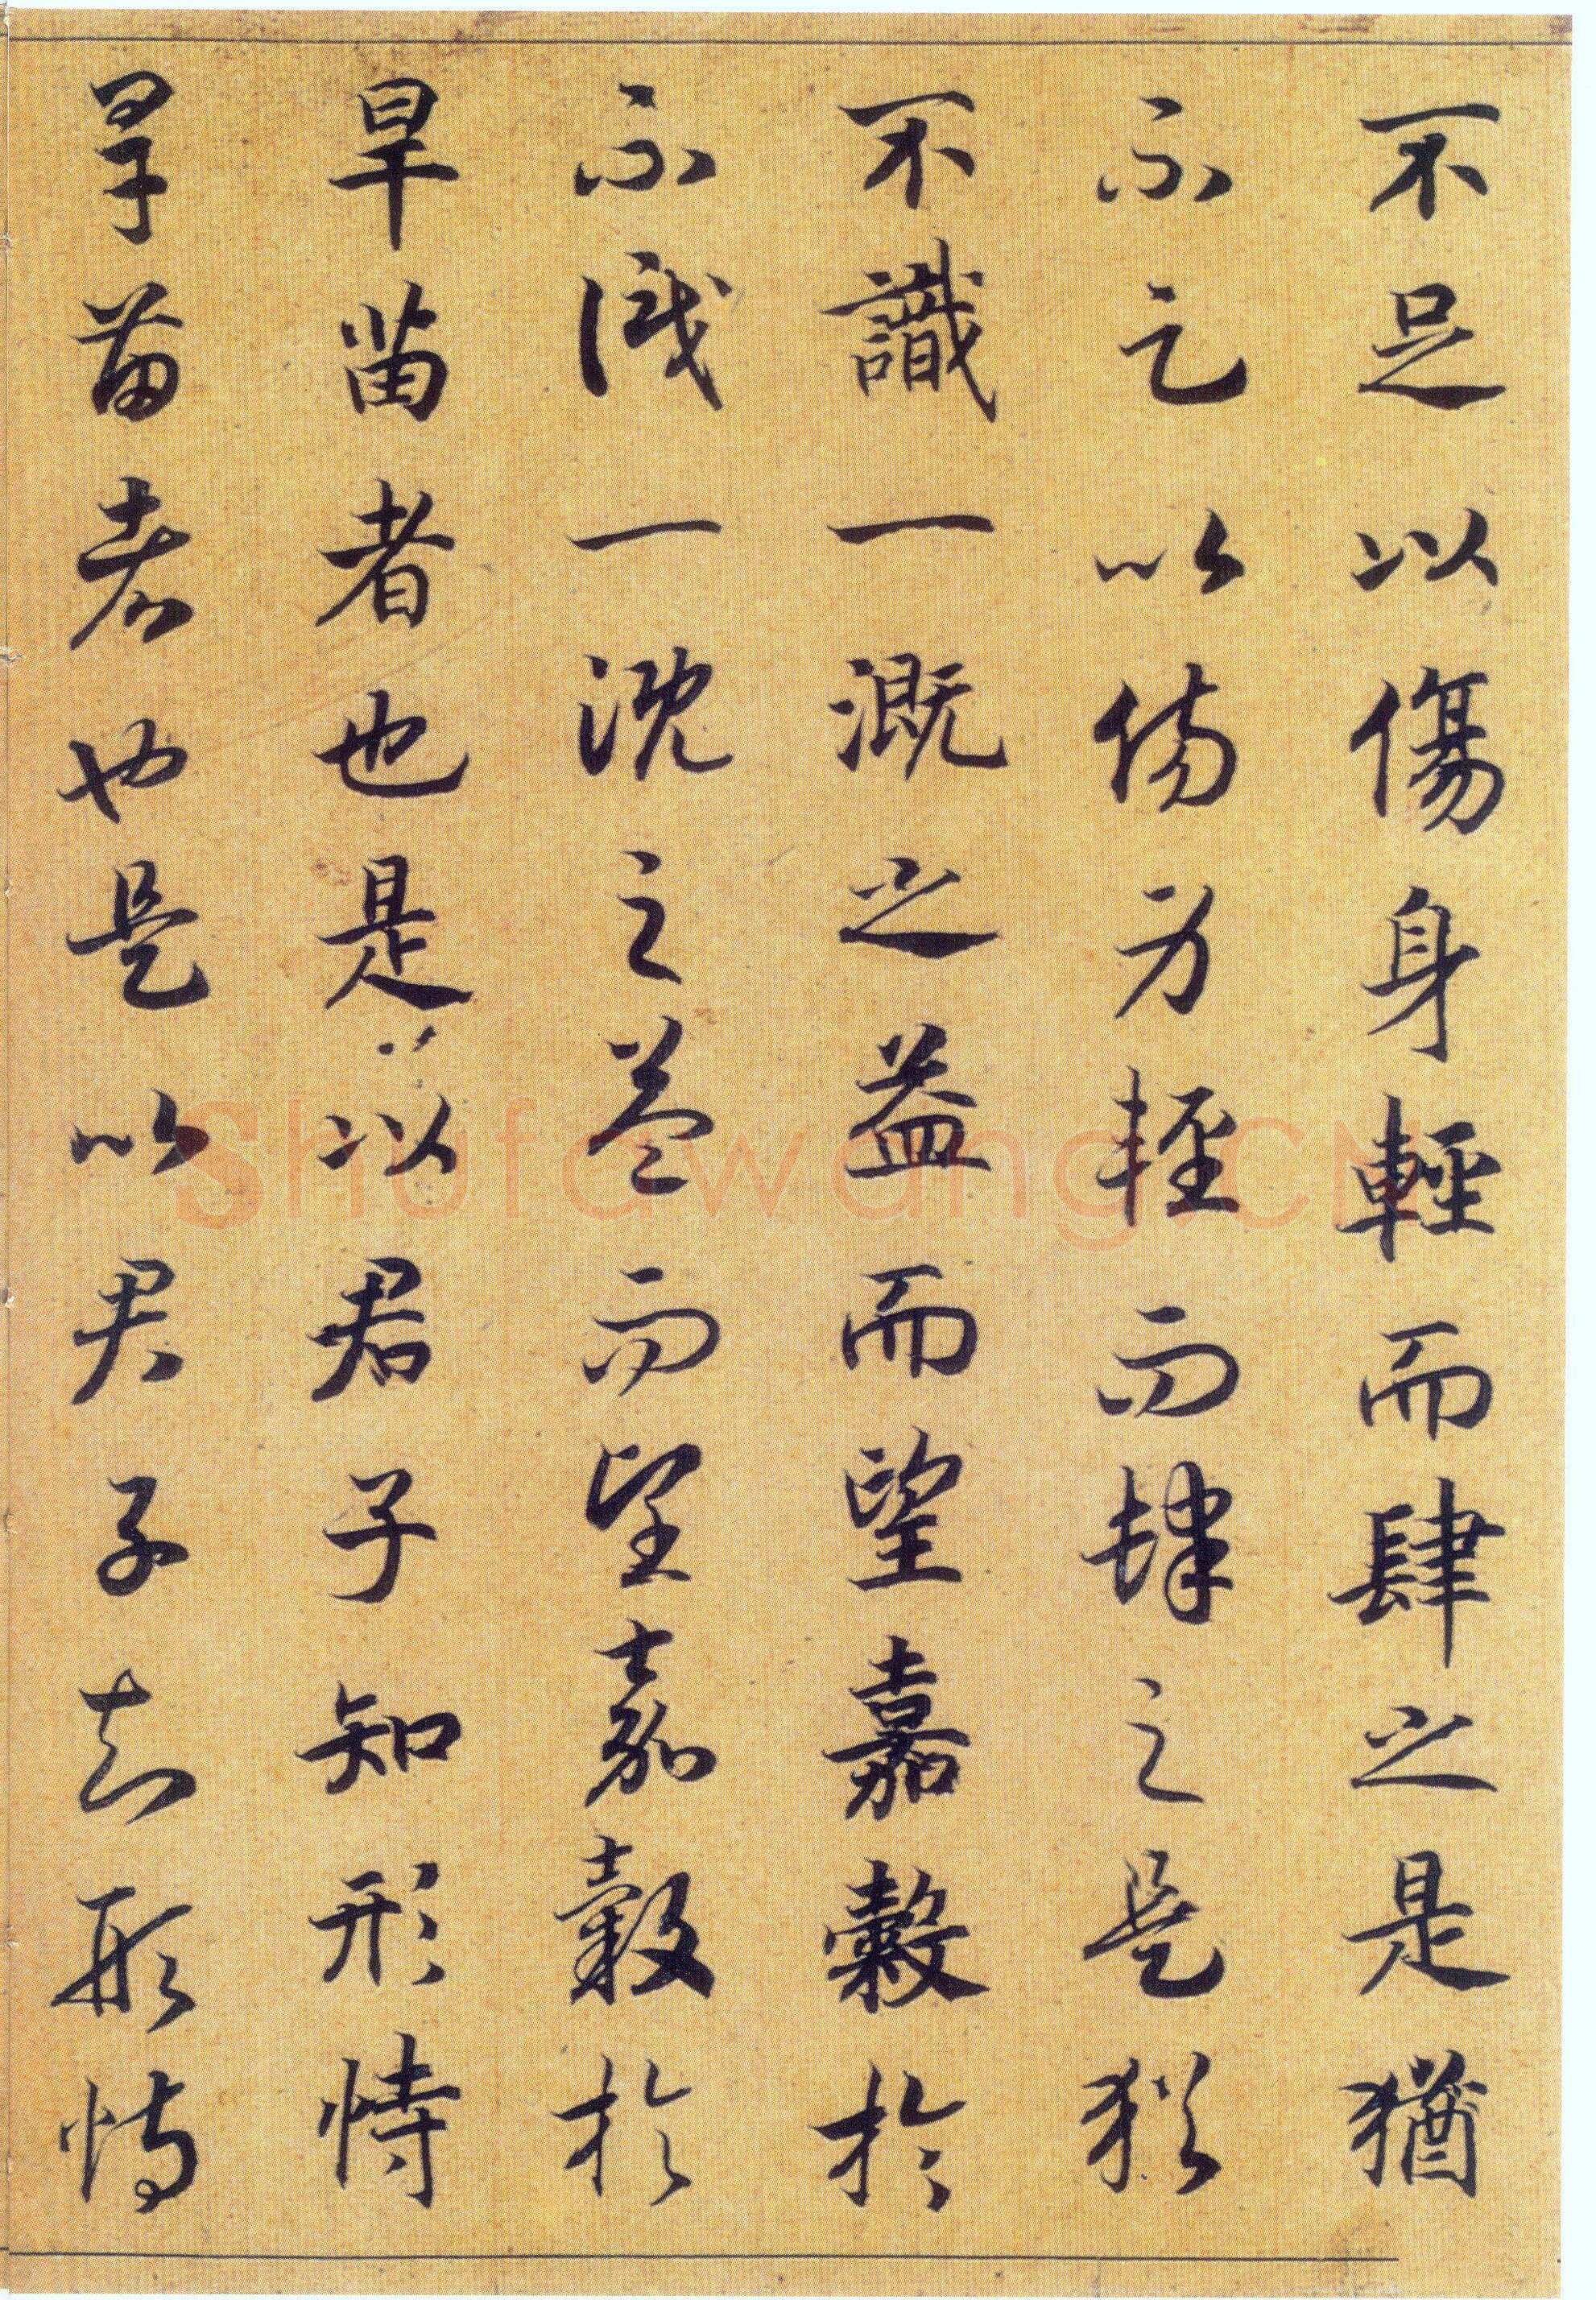 不足以傷身輕而肆之是猶
不足以傷身輕而肆之是猶
不識一溉之益而望嘉穀於
不識一溉之益而望嘉穀於
旱苗者也是以君子知形恃
旱苗者也是以君子知形恃
Shufawang.CN